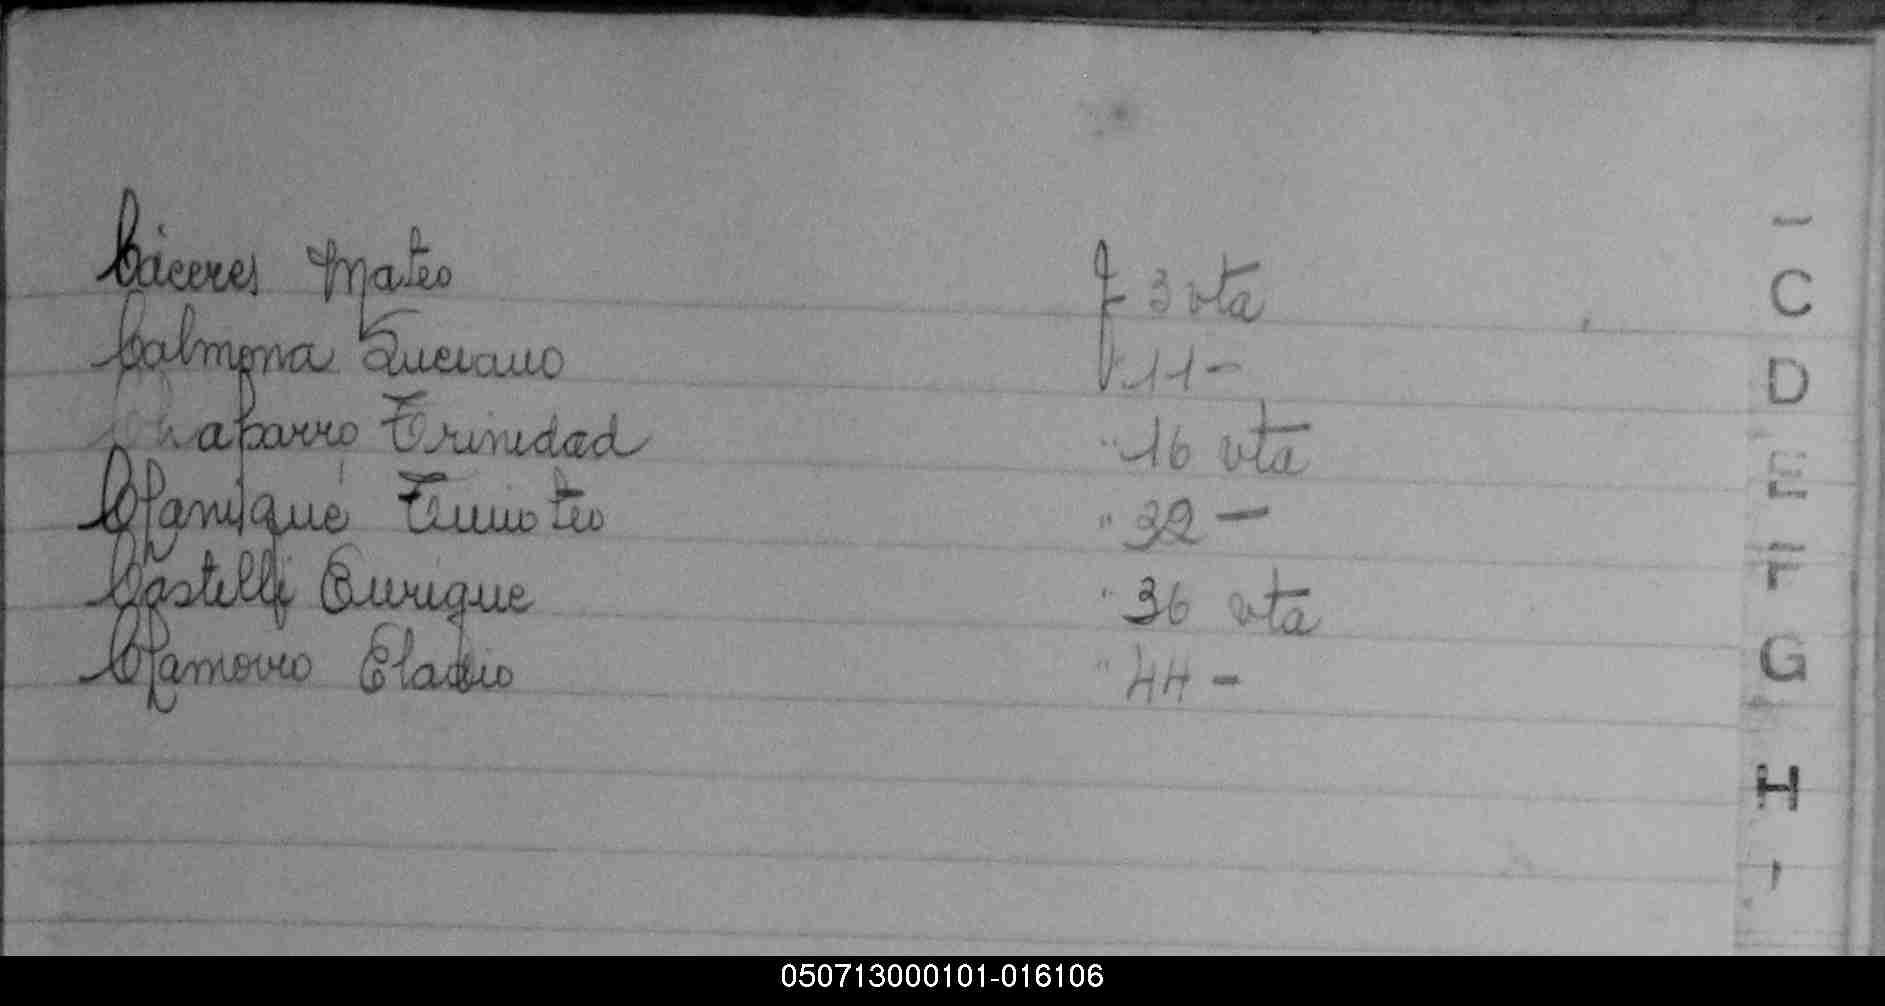 Cáceres Mateo f 3 vta
Calmona Luciano " 11 -
Chaparro Trinidad " 16 vta
Timoteo " 32 -
Castelli Enrique " 36 vta
Chamorro Eladio " 44 -
C
D
E
F
G
H
050713000101-016106